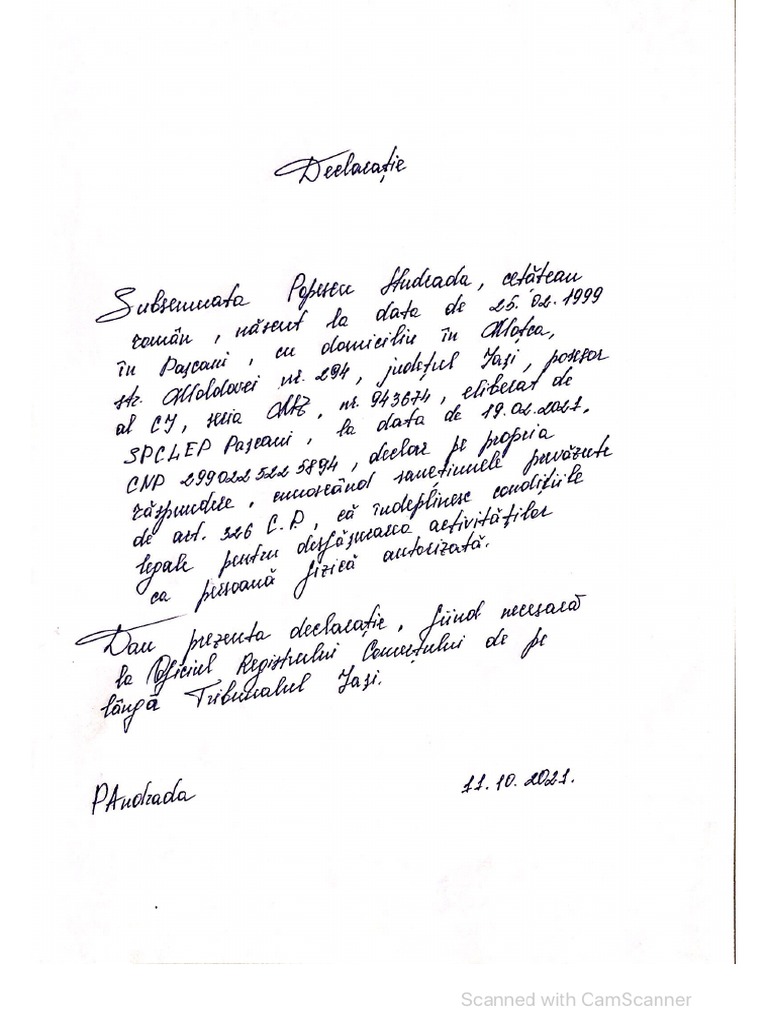 Declarație
Subsemnata Popescu Andrada, cetățean
român, născut la data de 25.02.1999
în Pașcani, cu domiciliu în Moțca,
str. Moldovei nr. 294, județul Iași, posesor
al CI, seria MZ, nr. 943674, eliberat de
SPCLEP Pașcani, la data de 19.02.2021,
CNP 2990225225894, declar pe propria
răspundere, cunoscând sancțiunele prevăzute
de art. 326 C.P., că îndeplinesc condițiile
legale pentru desfășurarea activităților
ca persoană fizică autorizată.
Dau prezenta declarație, fiind necesară
la Oficiul Registrului Comerțului de pe
lângă Tribunalul Iași.
PAndrada 11.10.2021.
Scanned with CamScanner